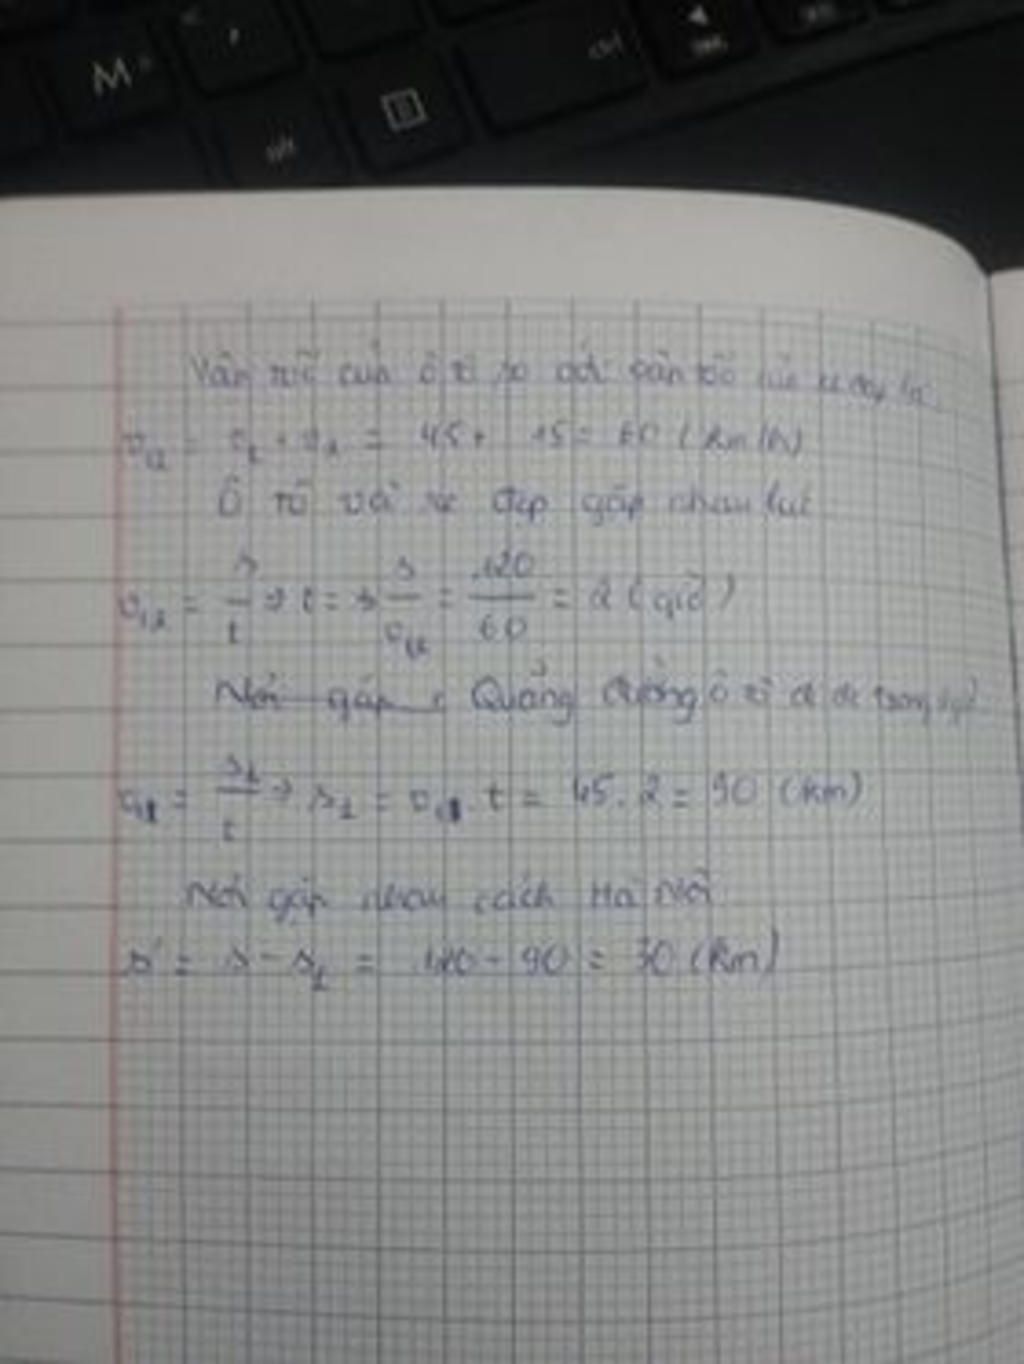 M
ctrl
Vận tốc của ô tô so với vận tốc của xe đạp là:
v₁₂ = v₁ + v₂ = 45 + 15 = 60 (km/h)
Ô tô và xe đạp gặp nhau lúc
v₁₂ = s/t ⇒ t = s/v₁₂ = 120/60 = 2 (giờ)
Nơi gặp : Quãng đường ô tô đi trong
= s₁/t ⇒ s₁ = t = 45.2 = 90 (km)
Nơi gặp nhau cách Hà Nội
s' = s - s₁ = 120 - 90 = 30 (km)